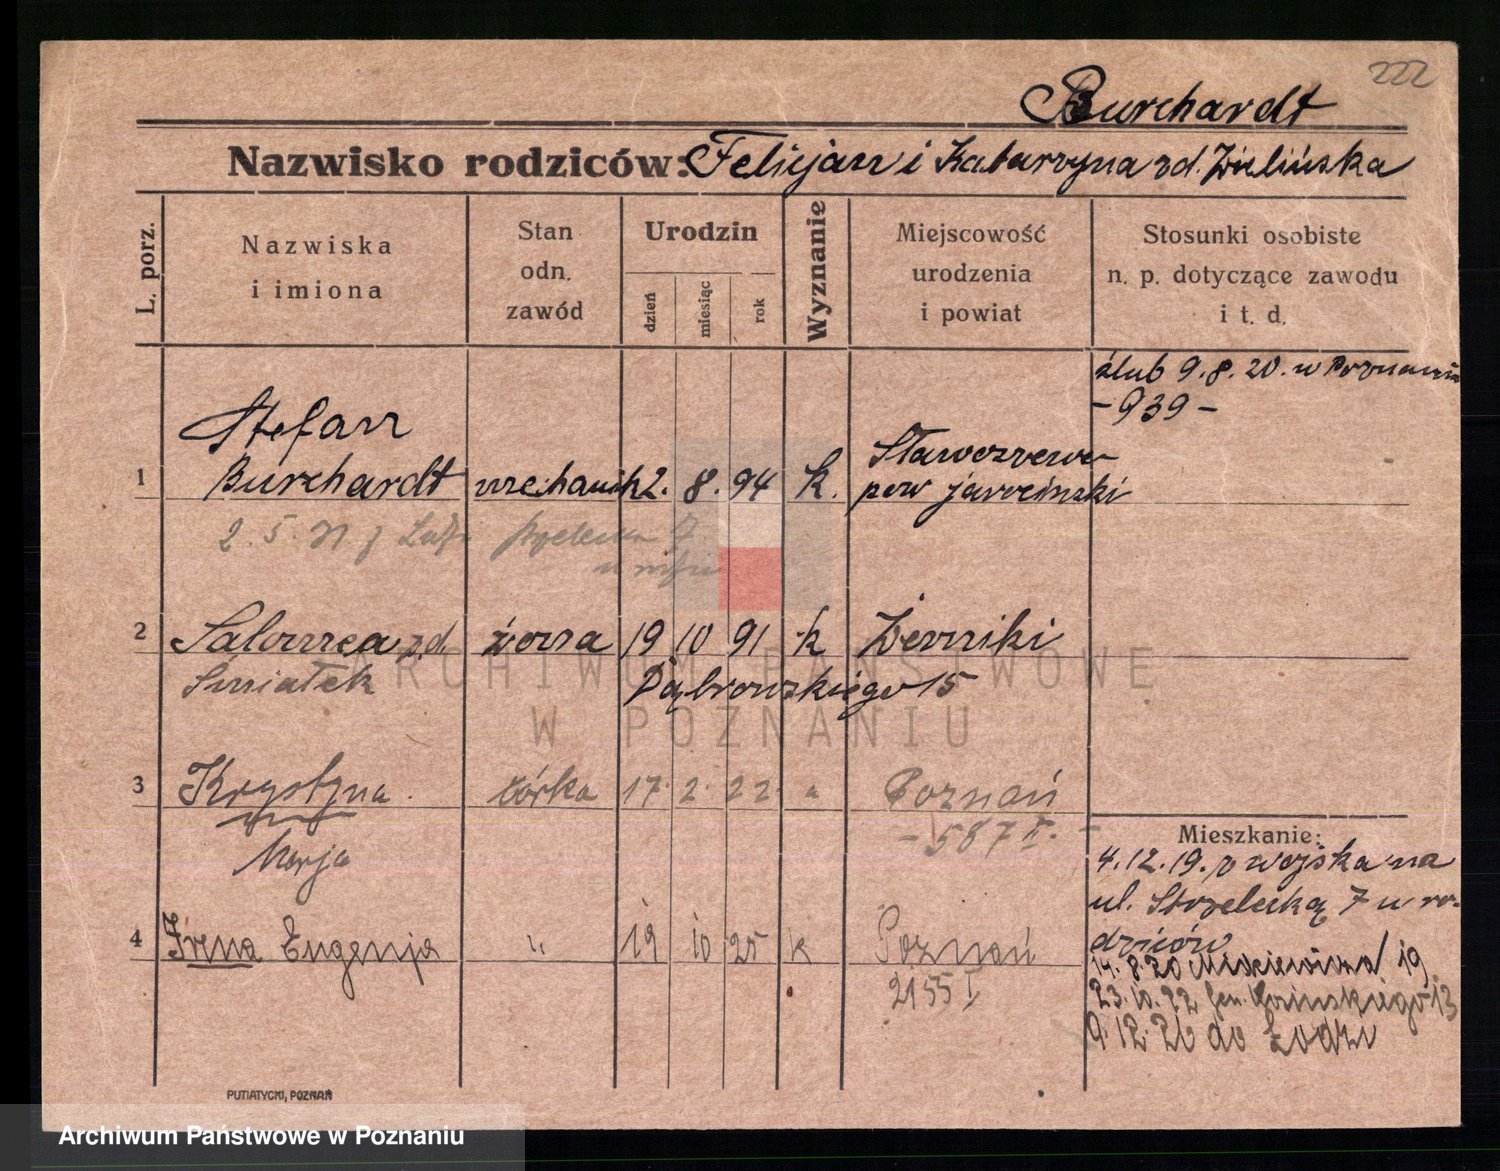 222
Burchardt
Nazwisko rodziców: Felicjan i Katarzyna zd. Zielińska
L. porz.
Nazwiska
i imiona
Stan
odn.
zawód
Urodzin
dzień
miesiąc
rok
Wyznanie
Miejscowość
urodzenia
i powiat
Stosunki osobiste
n. p. dotyczące zawodu
i t. d.
ślub 9.8.20. w Poznaniu
- 939 -
1
Stefan
Burchardt
mechanik
2. 8. 94
k.
pow jarociński
2. 5.
2
Salomea zd.
Śmiałek
żona
19 10 91
k
Żerniki
Dąbrowskiego 15
3
Krystyna
Marja
córka
17. 2. 22
"
Poznań
- 587 I. -
Mieszkanie:
4.12.19. z wojska na
ul. Strzelecką 7 u ro-
dziców
14.8.20 Mickiewicza 19
23.10.22 Gen. Kosińskiego 13
9.12.26 do Łodzi
4
Irena Eugenja
"
19 10 25
k
Poznań
2155 I
PUTIATYCKI, POZNAŃ
ARCHIWUM PAŃSTWOWE
W POZNANIU
Archiwum Państwowe w Poznaniu